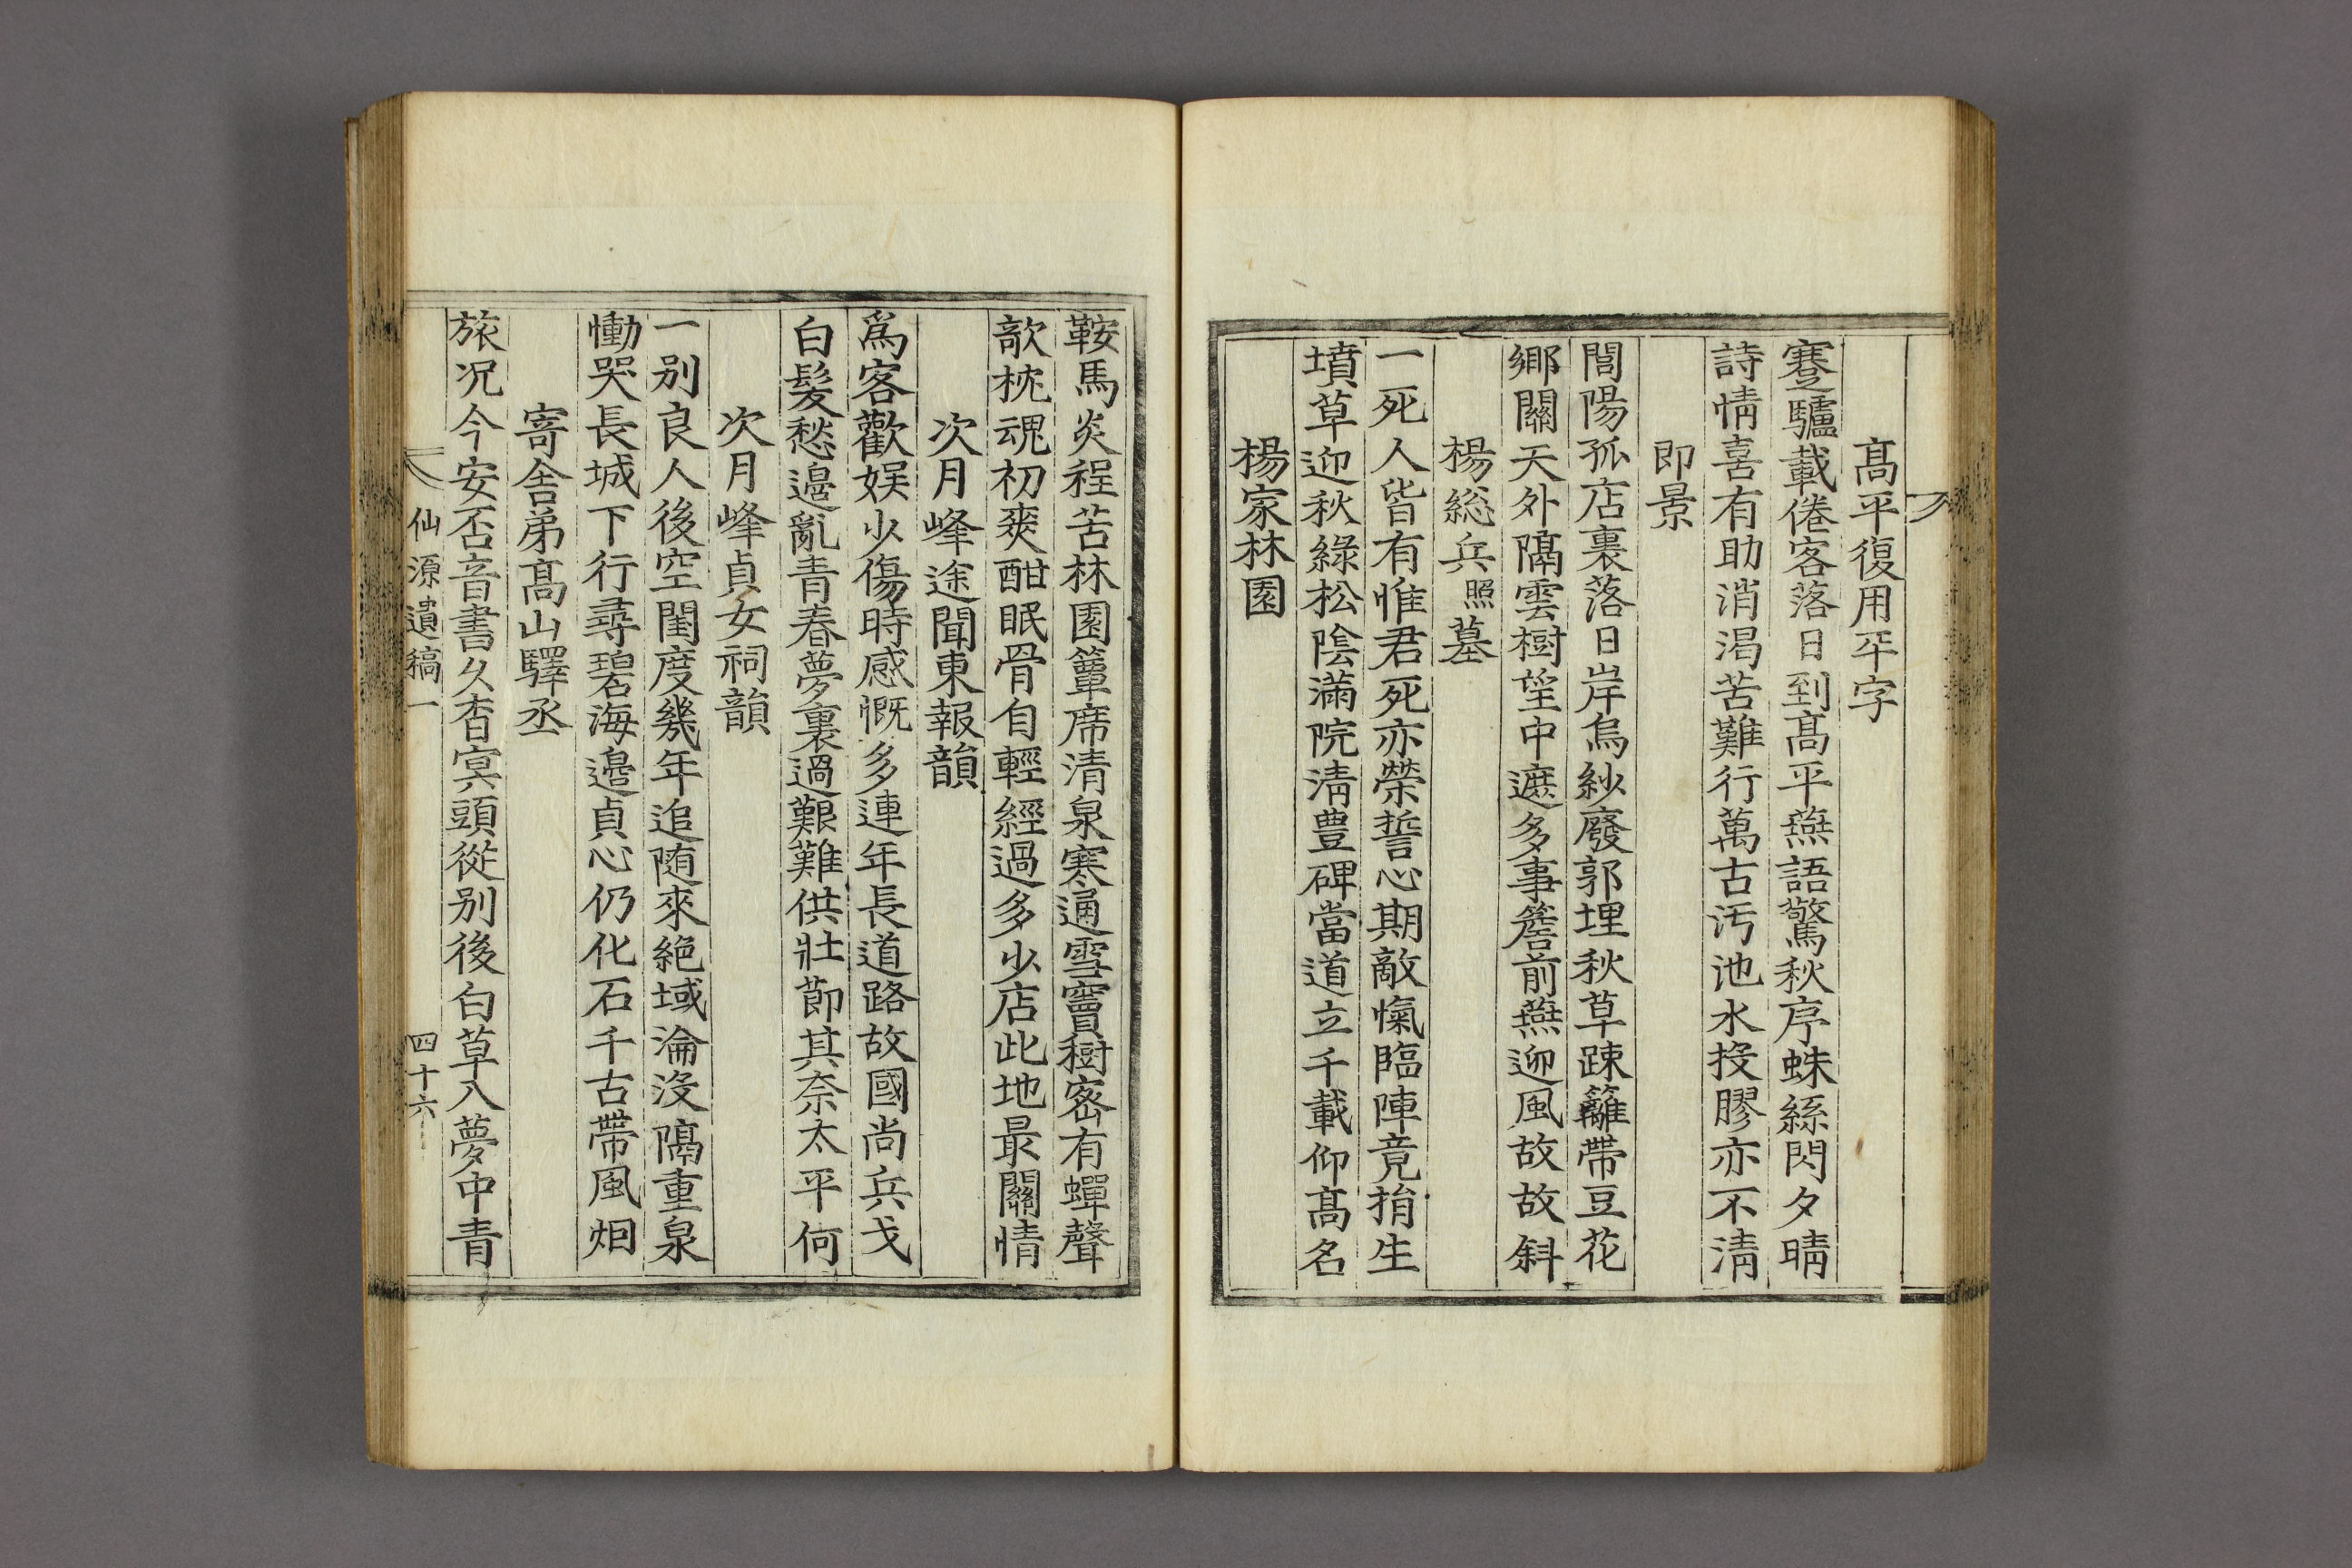 高平復用平字
蹇驢載倦客落日到高平燕語驚秋序蛛絲閃夕晴
詩情喜有助消渴苦難行萬古汚池水投膠亦不淸
即景
閭陽孤店裏落日岸烏紗廢郭埋秋草踈籬帶豆花
鄕關天外隔雲樹望中遮多事簷前燕迎風故故斜
楊総兵照墓
一死人皆有惟君死亦榮誓心期敵愾臨陣竟捐生
墳草迎秋綠松陰滿院淸豊碑當道立千載仰高名
楊家林園
鞍馬炎程苦林園簟席清泉寒通雪竇樹密有蟬聲
欹枕魂初爽酣眠骨自輕經過多少店此地最關情
次月峰途聞東報韻
爲客歡娱少傷時感慨多連年長道路故國尚兵戈
白髮愁邉亂靑春夢裏過艱難供壯節其奈太平何
次月峰貞女祠韻
一别良人後空閨度幾年追随來絶域淪沒隔重泉
慟哭長城下行尋碧海邉貞心仍化石千古帶風烟
寄舍弟高山驛丞
旅况今安否音書久杳冥頭從别後白草入夢中青
仙源遺稿一
四十六